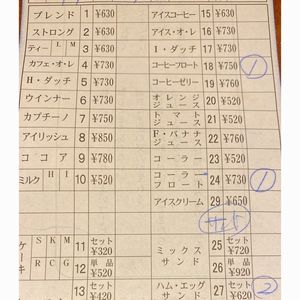 ブレンド 1 ¥630 アイスコーヒー 15 ¥630
ストロング 2 ¥630 アイス・オ・レ 16 ¥730
ティー L M 3 ¥630 I・ダッチ 17 ¥730
カフェ・オ・レ 4 ¥730 コーヒーフロート 18 ¥750 1
H・ダッチ 5 ¥730 コーヒーゼリー 19 ¥760
ウインナー 6 ¥730 オレンジジュース 20 ¥520
カプチーノ 7 ¥750 トマトジュース 21 ¥520
アイリッシュ 8 ¥850 F・バナナジュース 22 ¥760
ココア 9 ¥780 コーラー 23 ¥520
ミルク H I 10 ¥520 コーラーフロート 24 ¥730 1
アイスクリーム 29 ¥650
ケーキ S K M R C G 11 セット ¥320 ミックスサンド 25 セット ¥720
12 単品 ¥520 26 単品 ¥920
13 セット ¥420 ハム・エッグサンド 27 セット ¥690 2